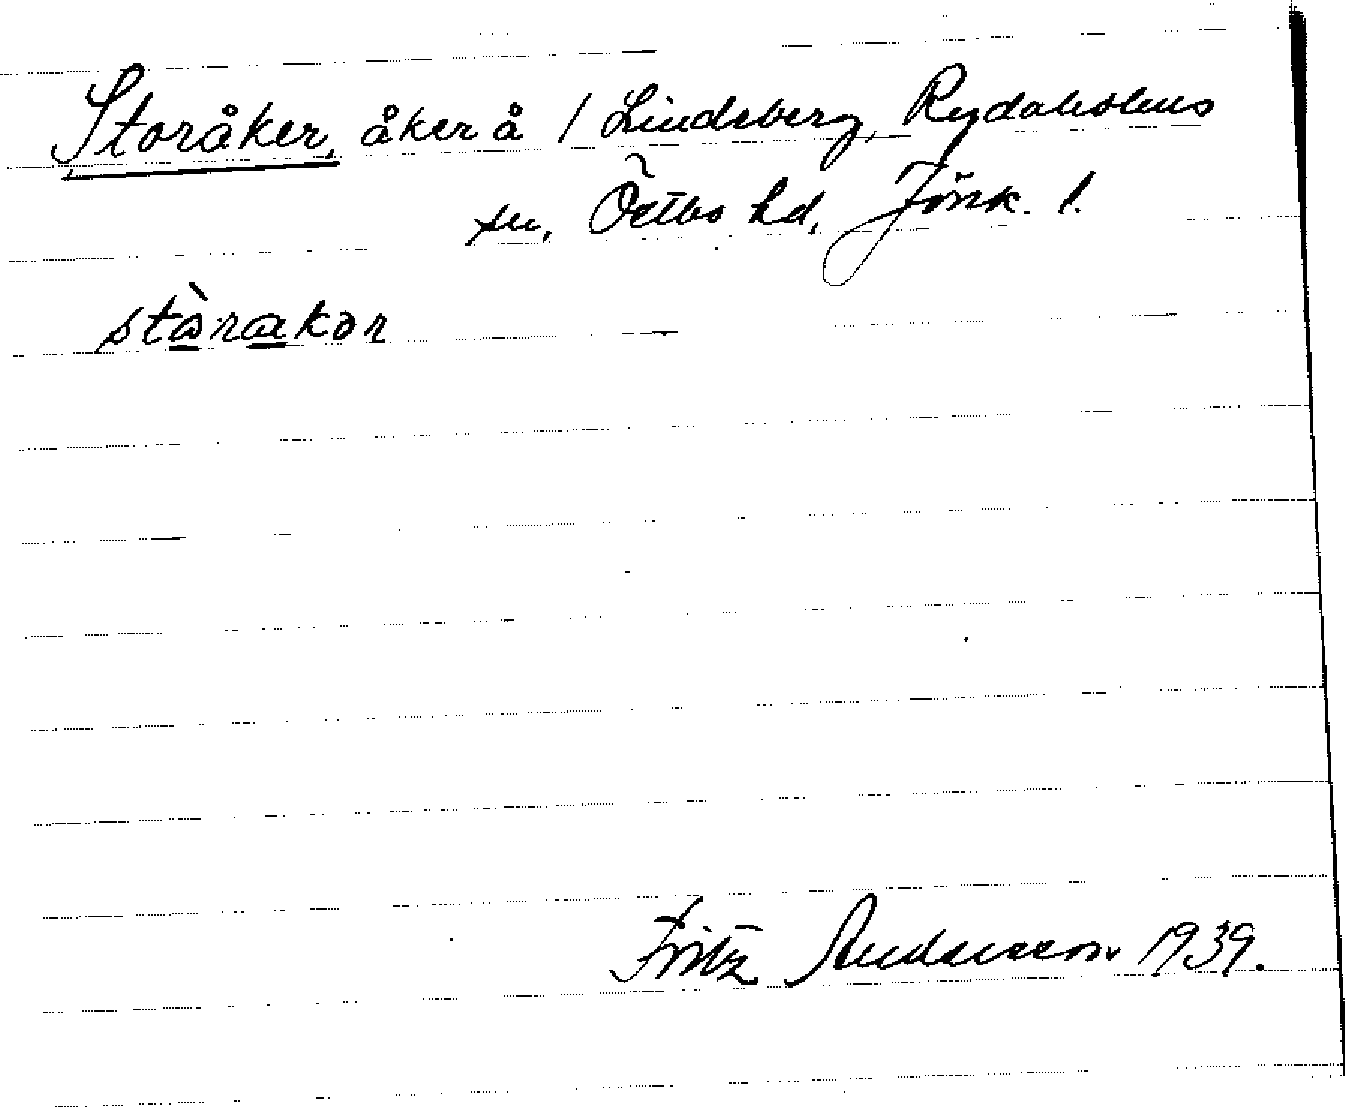 Storåker, åker å / Lindsberg, Rydaholms
sn, Östbo hd, Jönk. l.
stàrakər
Fritz Andersson 1939.